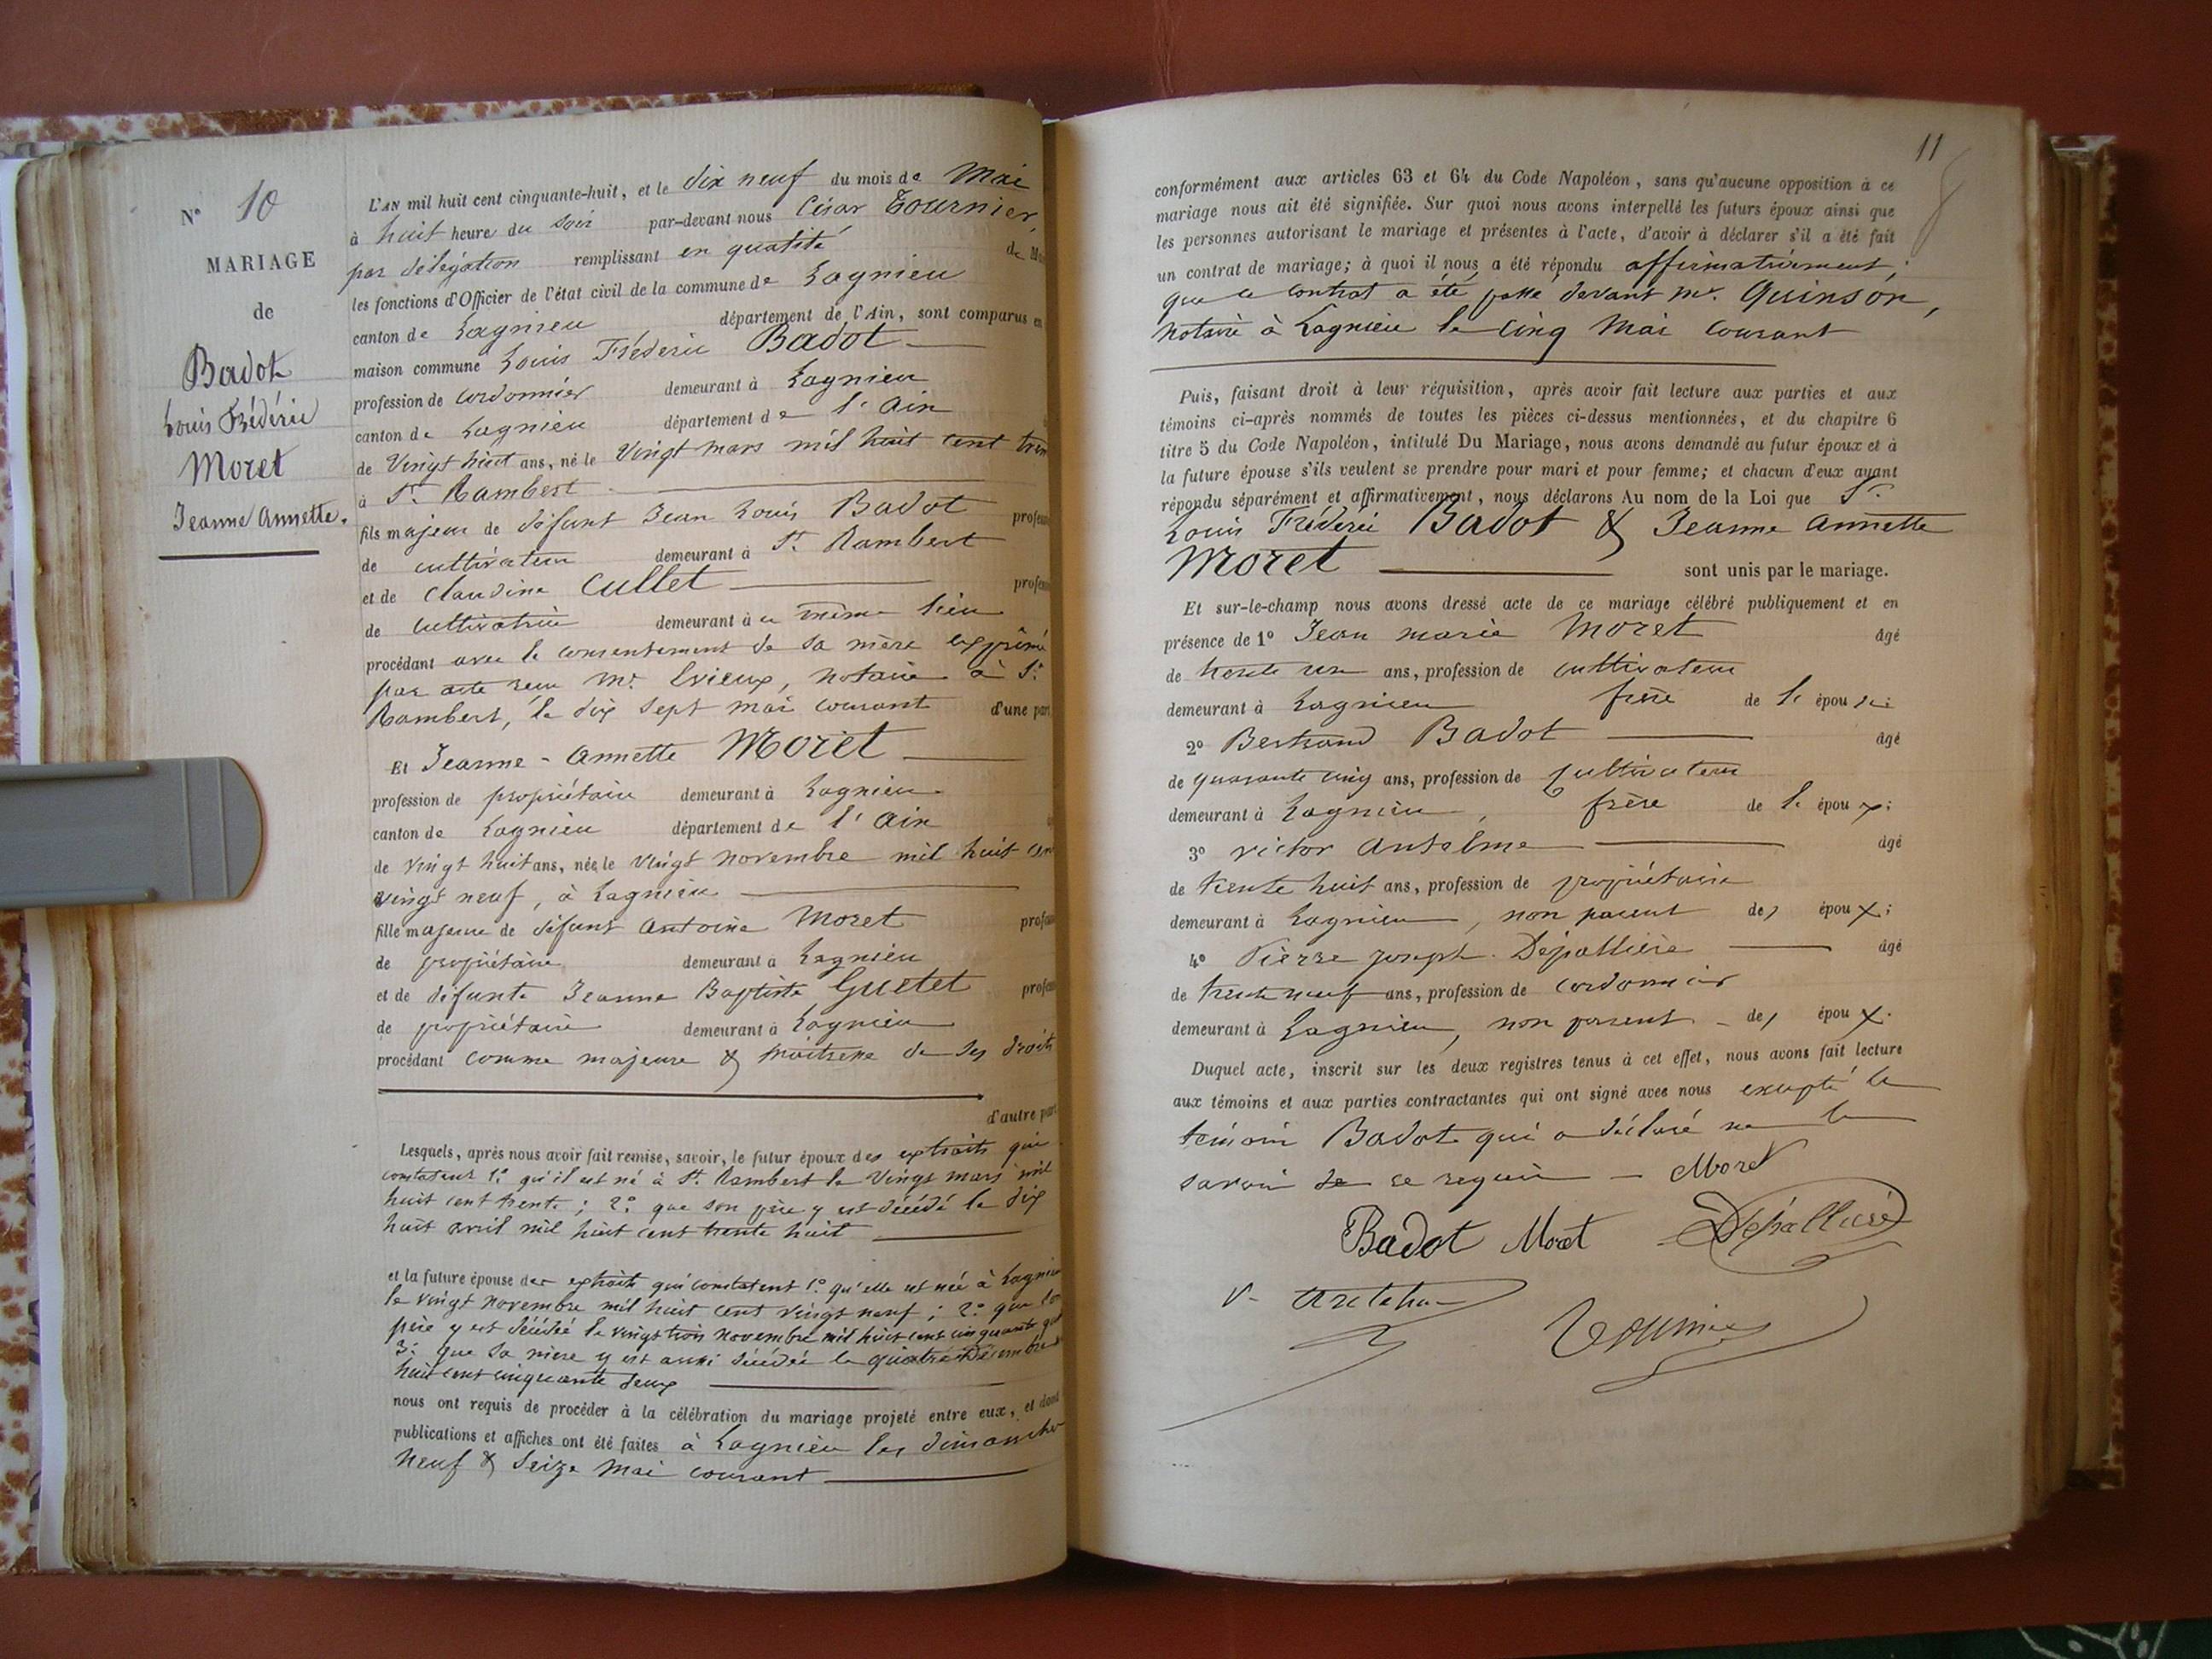 N° 10
MARIAGE
de
Badot
Louis Frédéric
Moret
Jeanne Annette.
L'AN mil huit cent cinquante-huit, et le dix neuf du mois de Mai
à huit heure du soir par-devant nous César Tournier,
par délégation remplissant en qualité de
les fonctions d'Officier de l'état civil de la commune de Lagnieu
canton de Lagnieu département de l'Ain, sont comparus en
maison commune Louis Fréderic Badot
profession de cordonnier demeurant à Lagnieu
canton de Lagnieu département de l'Ain
de Vingt huit ans, né le Vingt mars mil huit cent
à St. Rambert
fils majeur de défunt Jean Louis Badot
de cultivateur demeurant à St. Rambert
et de Claudine Cullet
de cultivatrice demeurant à ce même lieu
procédant avec le consentement de sa mère exprimé
par acte reçu Me. Evieux, notaire à St.
Rambert, le dix sept mai courant d'une part
Et Jeanne - Annette Moret
profession de propriétaire demeurant à Lagnieu
canton de Lagnieu département de l'Ain
de vingt huit ans, née le vingt novembre mil huit cent
vingt neuf, à Lagnieu
fille majeure de défunt Antoine Moret
de propriétaire demeurant à Lagnieu
et de défunte Jeanne Baptiste Guetet
de propriétaire demeurant à Lagnieu
procédant comme majeure & maitresse de ses droits
d'autre part
Lesquels, après nous avoir fait remise, savoir, le futur époux des extraits qui
constatent 1° qu'il est né à St. Rambert le Vingt mars mil
huit cent trente ; 2° que son père y est décédé le dix
huit avril mil huit cent trente huit
et la future épouse des extraits qui constatent 1° qu'elle est née à Lagnieu
le vingt novembre mil huit cent vingt neuf ; 2° que son
père y est décédé le vingt trois novembre mil huit cent cinquante
3° que sa mère y est aussi décédée le quatre Décembre
huit cent cinquante deux
nous ont requis de procéder à la célébration du mariage projeté entre eux, et dont
publications et affiches ont été faites à Lagnieu les dimanches
neuf & seize mai courant
11
conformément aux articles 63 et 64 du Code Napoléon, sans qu'aucune opposition à ce
mariage nous ait été signifiée. Sur quoi nous avons interpellé les futurs époux ainsi que
les personnes autorisant le mariage et présentes à l'acte, d'avoir à déclarer s'il a été fait
un contrat de mariage; à quoi il nous a été répondu affirmativement,
que ce contrat a été passé devant Me. Quinson,
notaire à Lagnieu le cinq Mai courant
Puis, faisant droit à leur réquisition, après avoir fait lecture aux parties et aux
témoins ci-après nommés de toutes les pièces ci-dessus mentionnées, et du chapitre 6
titre 5 du Code Napoléon, intitulé Du Mariage, nous avons demandé au futur époux et à
la future épouse s'ils veulent se prendre pour mari et pour femme; et chacun d'eux ayant
répondu séparément et affirmativement, nous déclarons Au nom de la Loi que Sr.
Louis Fréderic Badot & Jeanne Annette
Moret sont unis par le mariage.
Et sur-le-champ nous avons dressé acte de ce mariage célébré publiquement et en
présence de 1° Jean marie Moret âgé
de trente un ans, profession de cultivateur
demeurant à Lagnieu frère de l'épouse;
2° Bertrand Badot âgé
de quarante cinq ans, profession de cultivateur
demeurant à Lagnieu, frère de l'époux;
3° victor Anselme âgé
de trente huit ans, profession de propriétaire
demeurant à Lagnieu, non parent des époux;
4° Pierre joseph Dépallière âgé
de trente neuf ans, profession de cordonnier
demeurant à Lagnieu, non parent des époux.
Duquel acte, inscrit sur les deux registres tenus à cet effet, nous avons fait lecture
aux témoins et aux parties contractantes qui ont signé avec nous excepté le
témoin Badot qui a déclaré ne le
savoir de ce requis — Moret
Badot Moret Dépalliere
Tournier